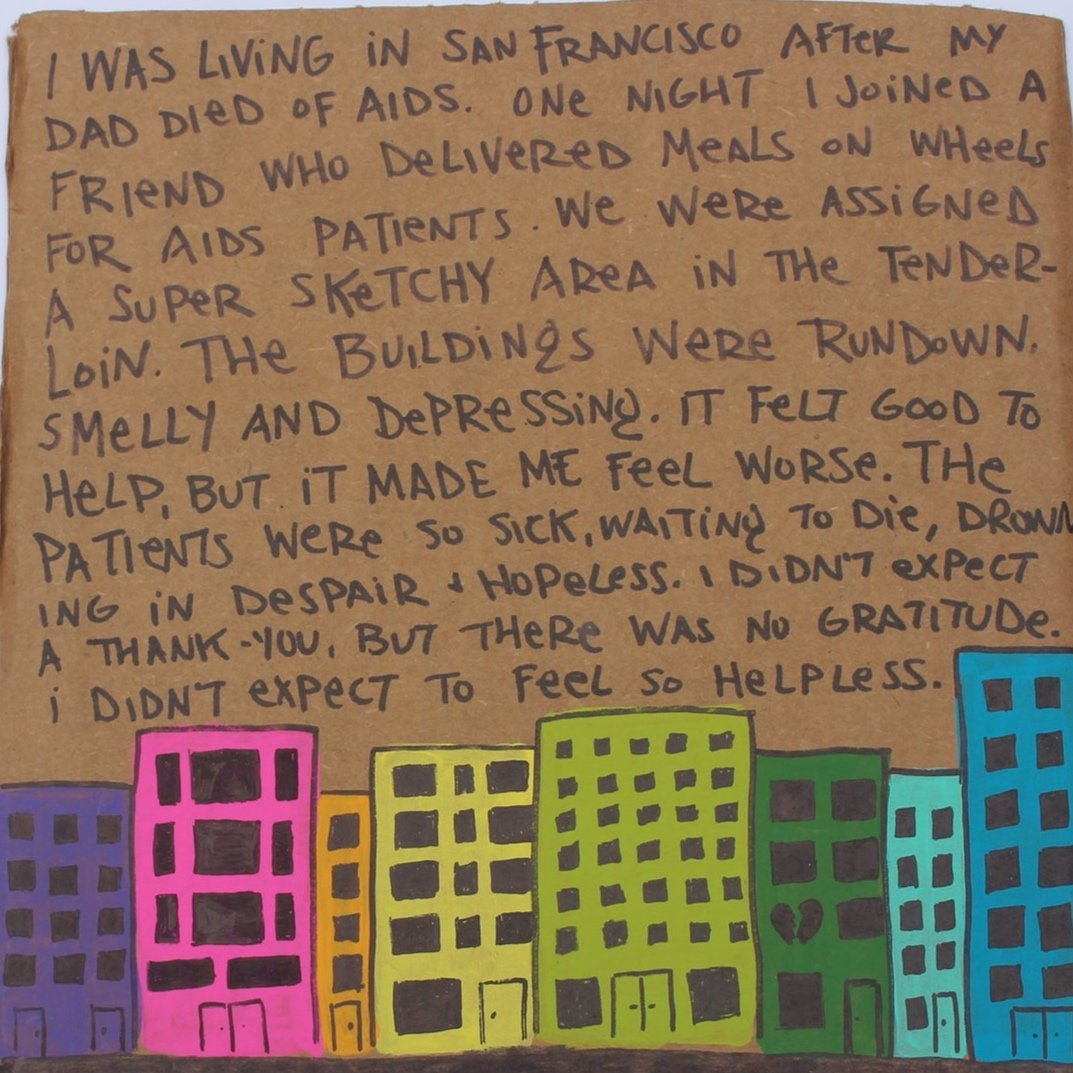 I WAS LIVING IN SAN FRANCISCO AFTER MY
DAD DIED OF AIDS. ONE NIGHT I JOINED A
FRIEND WHO DELIVERED MEALS ON WHEELS
FOR AIDS PATIENTS. WE WERE ASSIGNED
A SUPER SKETCHY AREA IN THE TENDER-
LOIN. THE BUILDINGS WERE RUNDOWN.
SMELLY AND DEPRESSING. IT FELT GOOD TO
HELP, BUT IT MADE ME FEEL WORSE. THE
PATIENTS WERE SO SICK, WAITING TO DIE, DROWN
ING IN DESPAIR + HOPELESS. I DIDN'T EXPECT
A THANK-YOU, BUT THERE WAS NO GRATITUDE.
I DIDN'T EXPECT TO FEEL SO HELPLESS.